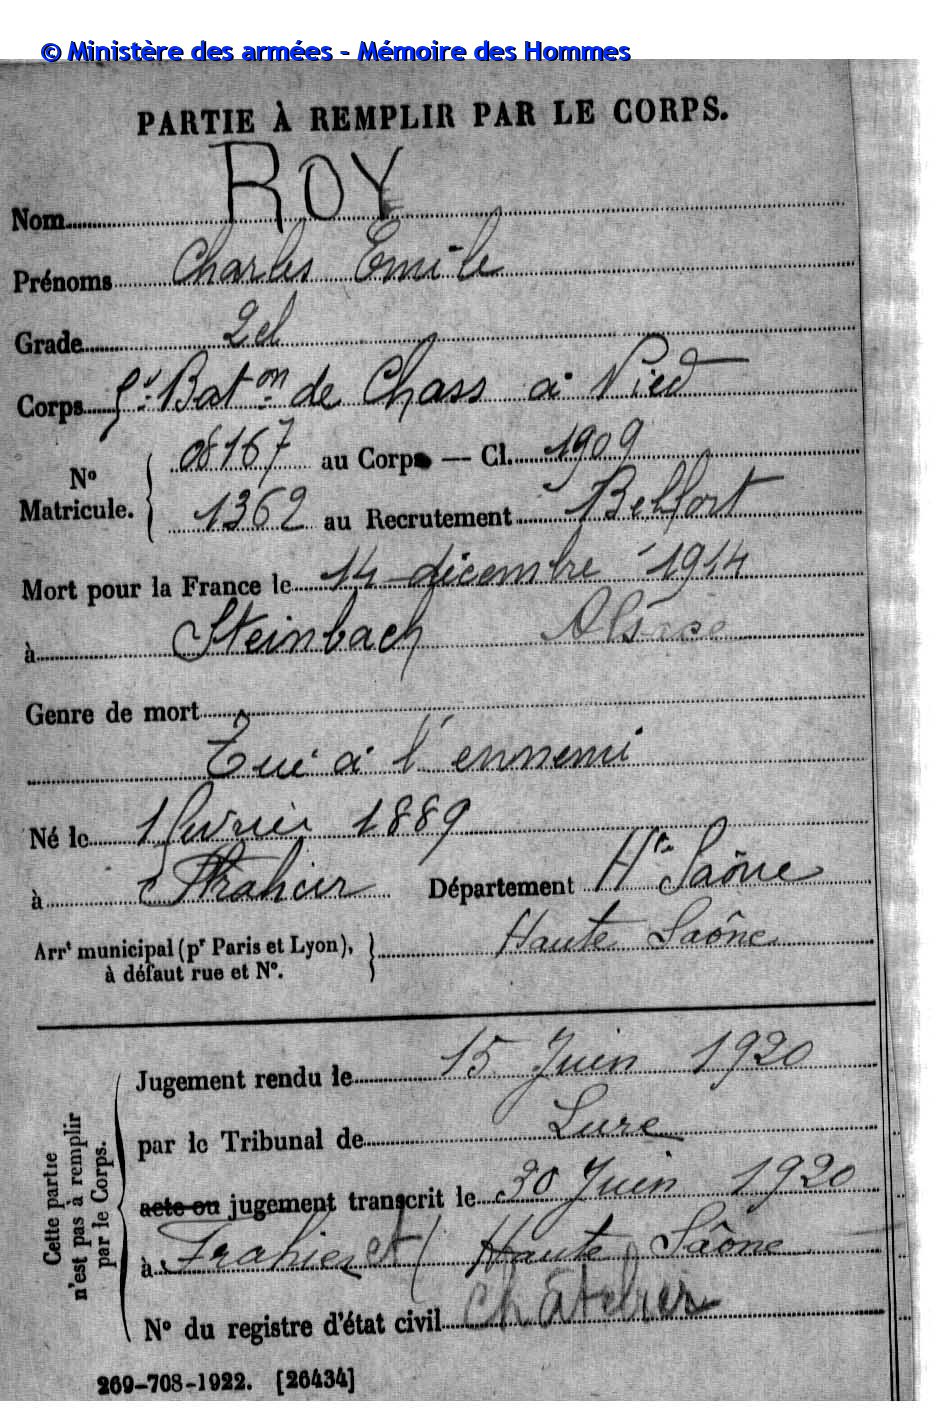 © Ministère des armées - Mémoire des Hommes
PARTIE À REMPLIR PAR LE CORPS.
Nom ROY
Prénoms Charles Emile
Grade 2 cl
Corps 5e Baton de Chass à Pied
No Matricule. { 08167 au Corps — Cl. 1909
1362 au Recrutement Belfort
Mort pour la France le 14 décembre 1914
à Steinbach Alsace
Genre de mort
Tué à l'ennemi
Né le 1 février 1889
à Frahier Département Hte Saône
Arrt municipal (pr Paris et Lyon), à défaut rue et No. } Haute Saône
Cette partie n'est pas à remplir par le Corps.
Jugement rendu le 15 Juin 1920
par le Tribunal de Lure
acte ou jugement transcrit le 30 Juin 1920
à Frahier et Haute Saône
Chatebier
No du registre d'état civil
269-708-1922. [26434]